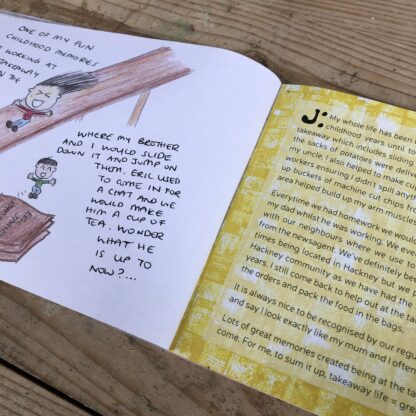 ONE OF MY FUN
CHILDHOOD MEMORIES
WORKING AT
TAKEAWAY
THE
WHERE MY BROTHER
AND I WOULD SLIDE
DOWN IT AND JUMP ON
THEM. ERIC USED
TO COME IN FOR
A CHAT AND WE
WOULD MAKE
HIM A CUP OF
TEA. WONDER
WHAT HE
IS UP TO
NOW?...
J: My whole life has been
childhood years until to
takeaway which includes sliding
the sacks of potatoes were deliver
my uncle. I also helped to m
workers ensuring I didn't spill anyth
up buckets of machine cut chips fr
area helped build up my arm muscle
Everytime we had homework we wou
my dad whilst he was working. We ever
with our neighbours where we use to
from the newsagent. We've definitely bu
times being located in Hackney but we
Hackney community as we have had th
years. I still come back to help out at the ta
the orders and pack the food in the bags.
It is always nice to be recognised by our regu
and say I look exactly like my mum and I often
Lots of great memories created being at the ta
come. For me, to sum it up, takeaway life = gre